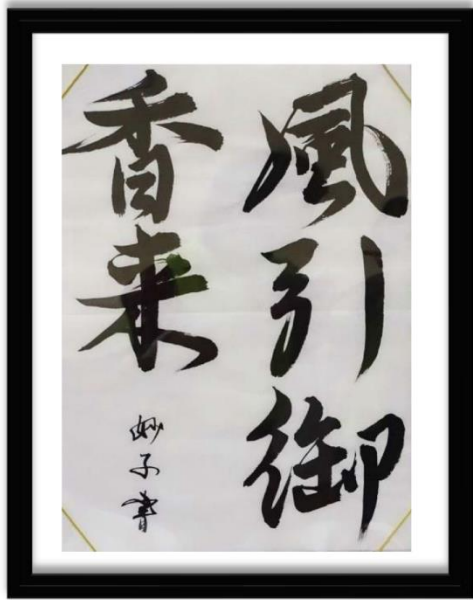 風引御
香来
妙子書